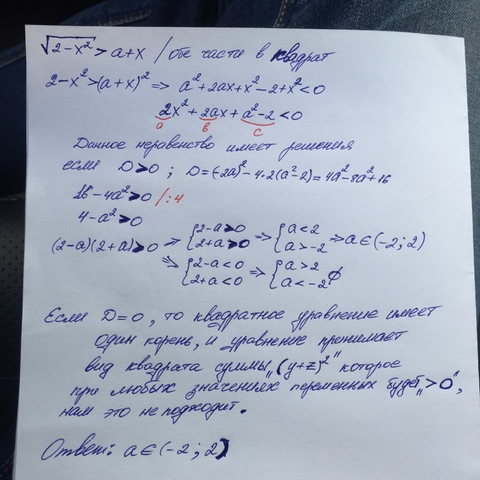 √2-x² > a+x / обе части в квадрат
2-x² > (a+x)² => a²+2ax+x²-2+x² < 0
2x² + 2ax + a²-2 < 0
a b c
Данное неравенство имеет решения
если D > 0 ; D = (-2a)² - 4·2(a²-2) = 4a²-8a²+16
16-4a² > 0 /:4
4-a² > 0
(2-a)(2+a) > 0 => {2-a > 0 => {a < 2 => a ∈ (-2; 2)
2+a > 0 a > -2
=> {2-a < 0 => {a > 2 ∅
2+a < 0 a < -2
Если D=0, то квадратное уравнение имеет
один корень, и уравнение принимает
вид квадрата суммы „(y+z)²" которое
при любых значениях переменных будет „>0",
нам это не подходит.
Ответ: a ∈ (-2; 2)